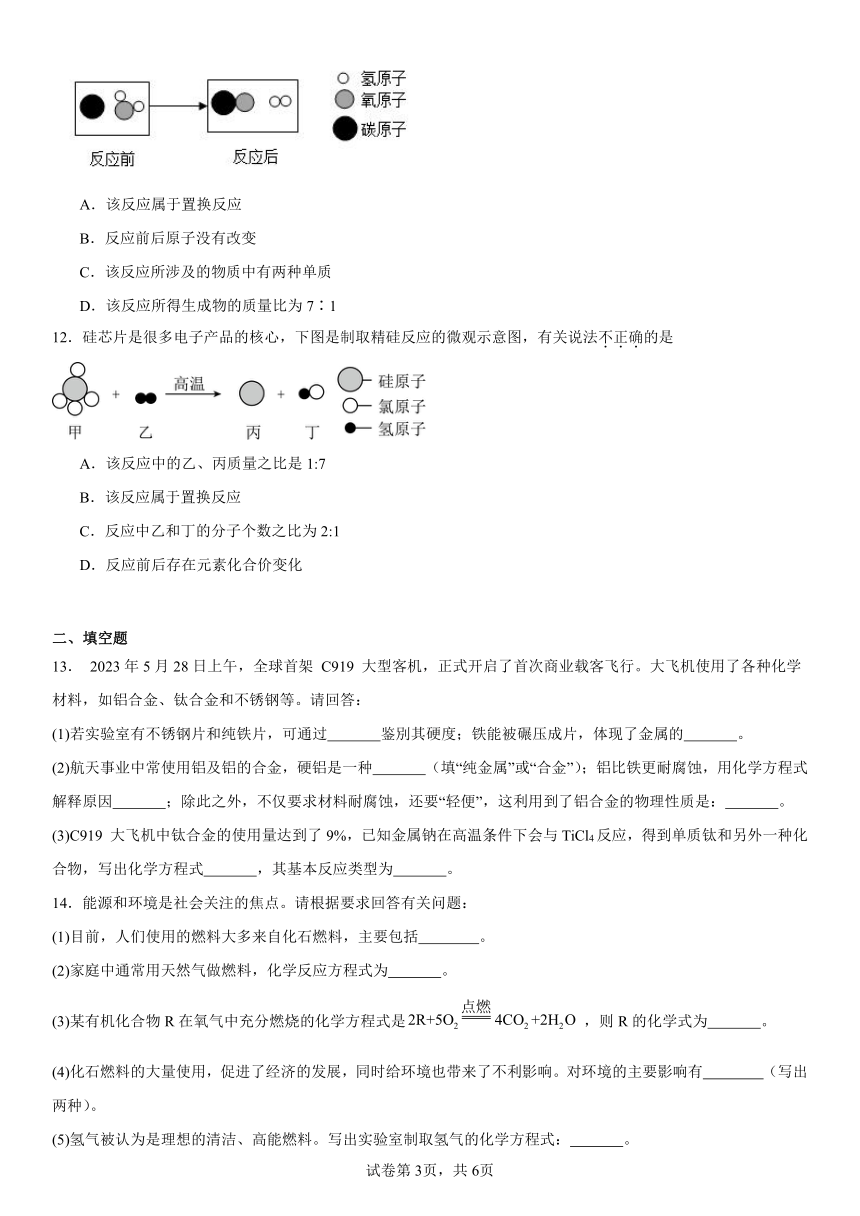 氢原子
氧原子
碳原子
反应前 反应后
A．该反应属于置换反应
B．反应前后原子没有改变
C．该反应所涉及的物质中有两种单质
D．该反应所得生成物的质量比为 7∶1
12．硅芯片是很多电子产品的核心，下图是制取精硅反应的微观示意图，有关说法不正确的是
+ 高温 + 硅原子
氯原子
甲 乙 丙 丁 氢原子
A．该反应中的乙、丙质量之比是 1:7
B．该反应属于置换反应
C．反应中乙和丁的分子个数之比为 2:1
D．反应前后存在元素化合价变化
二、填空题
13． 2023 年 5 月 28 日上午，全球首架 C919 大型客机，正式开启了首次商业载客飞行。大飞机使用了各种化学
材料，如铝合金、钛合金和不锈钢等。请回答：
(1)若实验室有不锈钢片和纯铁片，可通过_______鉴别其硬度；铁能被碾压成片，体现了金属的_______。
(2)航天事业中常使用铝及铝的合金，硬铝是一种_______（填“纯金属”或“合金”）；铝比铁更耐腐蚀，用化学方程式
解释原因_______；除此之外，不仅要求材料耐腐蚀，还要“轻便”，这利用到了铝合金的物理性质是：_______。
(3)C919 大飞机中钛合金的使用量达到了 9%，已知金属钠在高温条件下会与 TiCl₄ 反应，得到单质钛和另外一种化
合物，写出化学方程式_______，其基本反应类型为_______。
14．能源和环境是社会关注的焦点。请根据要求回答有关问题：
(1)目前，人们使用的燃料大多来自化石燃料，主要包括________。
(2)家庭中通常用天然气做燃料，化学反应方程式为_______。
(3)某有机化合物 R 在氧气中充分燃烧的化学方程式是 2R+5O₂ 点燃 4CO₂+2H₂O ，则 R 的化学式为_______。
(4)化石燃料的大量使用，促进了经济的发展，同时给环境也带来了不利影响。对环境的主要影响有________（写出
两种）。
(5)氢气被认为是理想的清洁、高能燃料。写出实验室制取氢气的化学方程式：_______。
试卷第 3页，共 6页